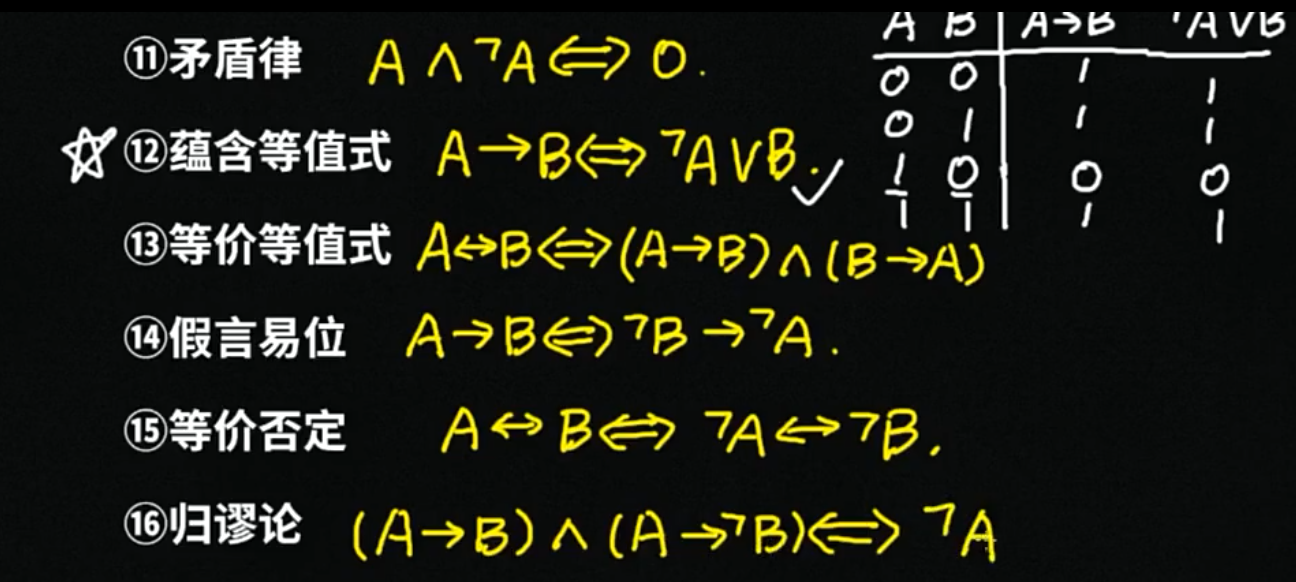 ⑪矛盾律 A∧¬A⇔0.
☆⑫蕴含等值式 A→B⇔¬A∨B.✓
⑬等价等值式 A↔B⇔(A→B)∧(B→A)
⑭假言易位 A→B⇔¬B→¬A.
⑮等价否定 A↔B⇔¬A↔¬B,
⑯归谬论 (A→B)∧(A→¬B)⇔¬A
A B A→B ¬A∨B
0 0 1 1
0 1 1 1
1 0 0 0
1 1 1 1